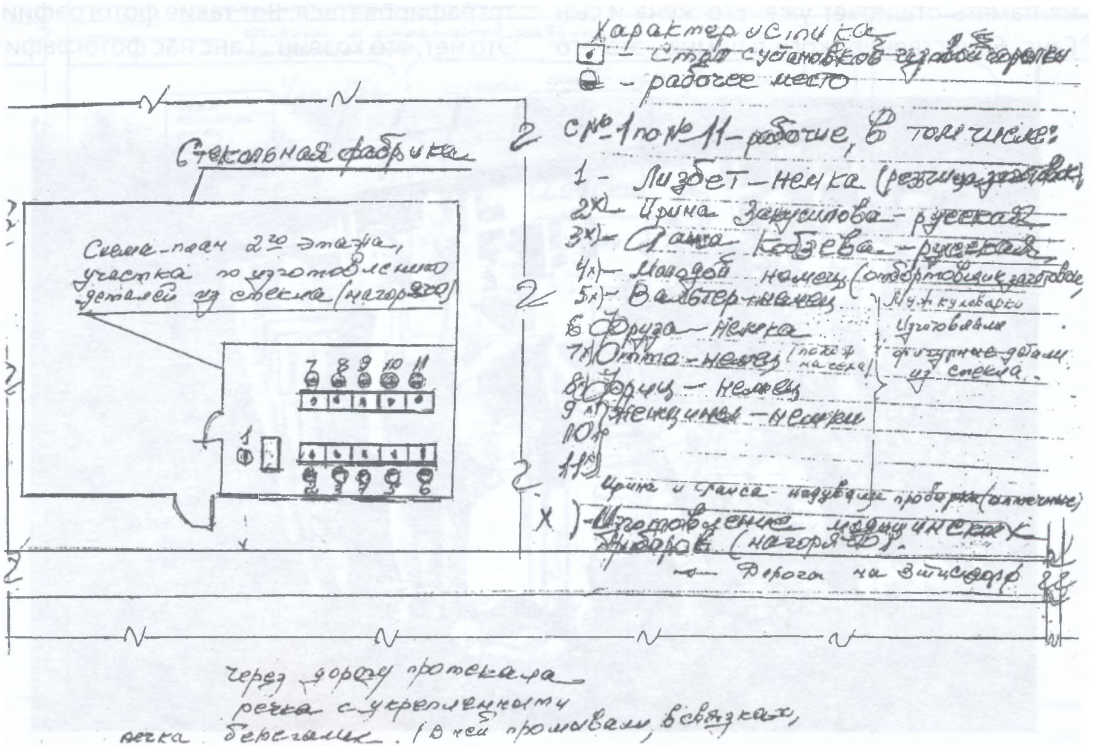 Характеристика
- стол с установкой газовой горелки
- рабочее место
с № 1 по № 11 – рабочие, в том числе:
1 - Лизбет – немка (резчица заготовок)
2х) - Ирина Закусилова – русская
3х) - Кобзева – русская
4х) - Молодой немец (отбортовщик заготовок)
5х) - Вальтер – немец
6 Фруза – немка
7х) Отто – немец (похож на чеха)
8х) Фриц – немец
9х) женщины – немки
10х)
11х)
Изготовляли
фигурные детали
из стекла
Ирина и надували пробирки (аптечные)
х) - Изготовление медицинских
приборов (нагорячо).
← Дорога на
Стекольная фабрика
Схема-план 2го этажа,
участка по изготовлению
деталей из стекла (нагорячо)
7 8 9 10 11
1
2 3 4 5 6
через дорогу протекала
речка с укрепленности
речка берегами. (в ней промывали, в связках,